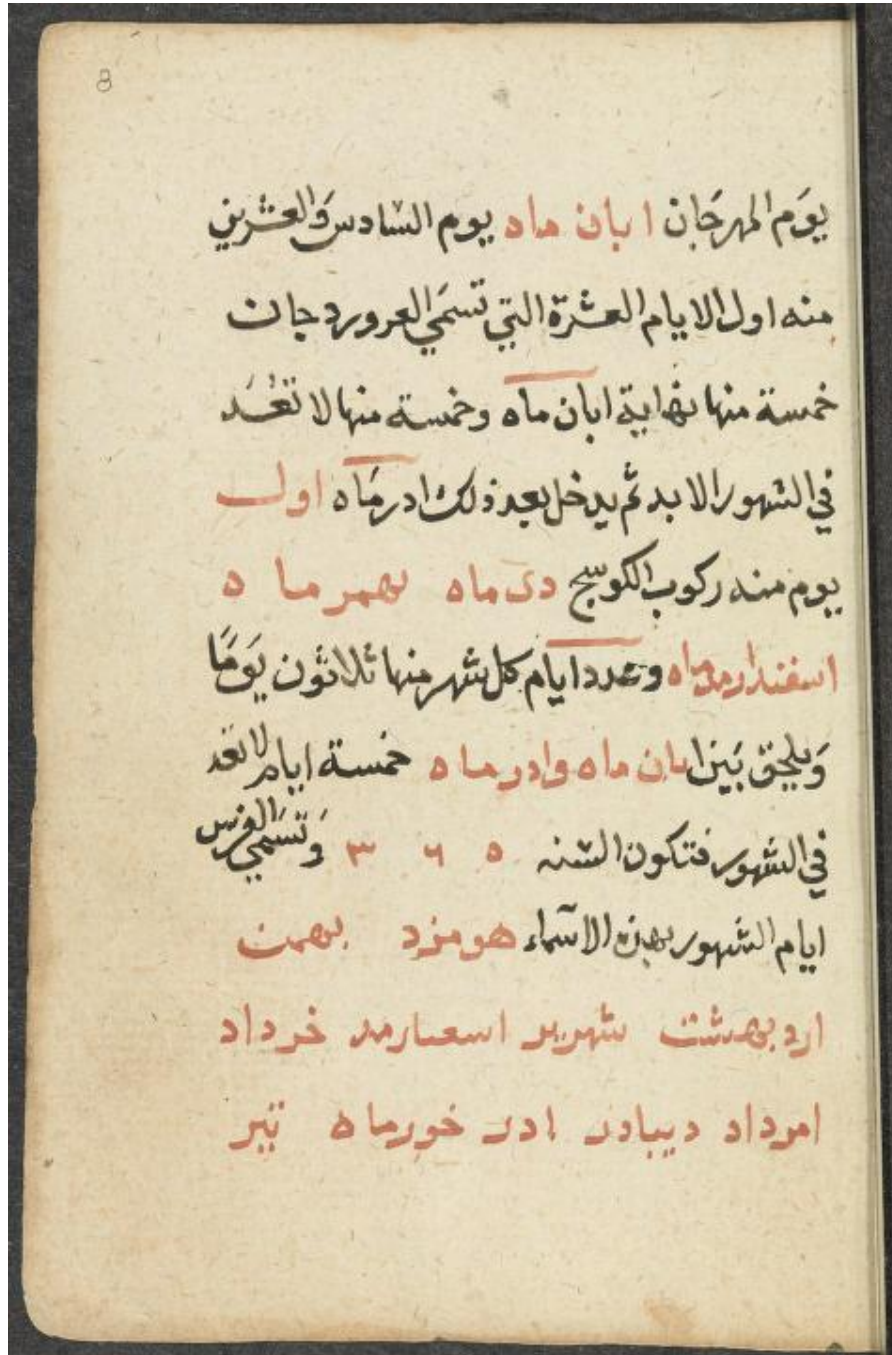 8
يوَم المهرجَان ابان ماه يوم السَادس وَالعشرين
منه اول الايام العشرة التي تسمَي العروردجان
خمسة منها نهاية ابان ماه وخمسة منها لا تعُد
في الشهور الابد ثم يدخل بعد ذلك ادرمَاه اول
يوم منه ركوب الكوسج دى ماه بهمر ماه
اسفندارمد ماه وعدد ايام كل شهر منها ثلاثون يَومًا
وَيلحق بَين ابان ماه وادر ماه خمسة ايام لا تعد
في الشهور فتكون السنه ٥ ٦ ٣ وَتسَمي الفرس
ايام الشهور بهذه الاسَماء هومزد بهمن
اردبهشت شهرير اسعىارمد خرداد
امرداد ديبادر ادر خورماه تير